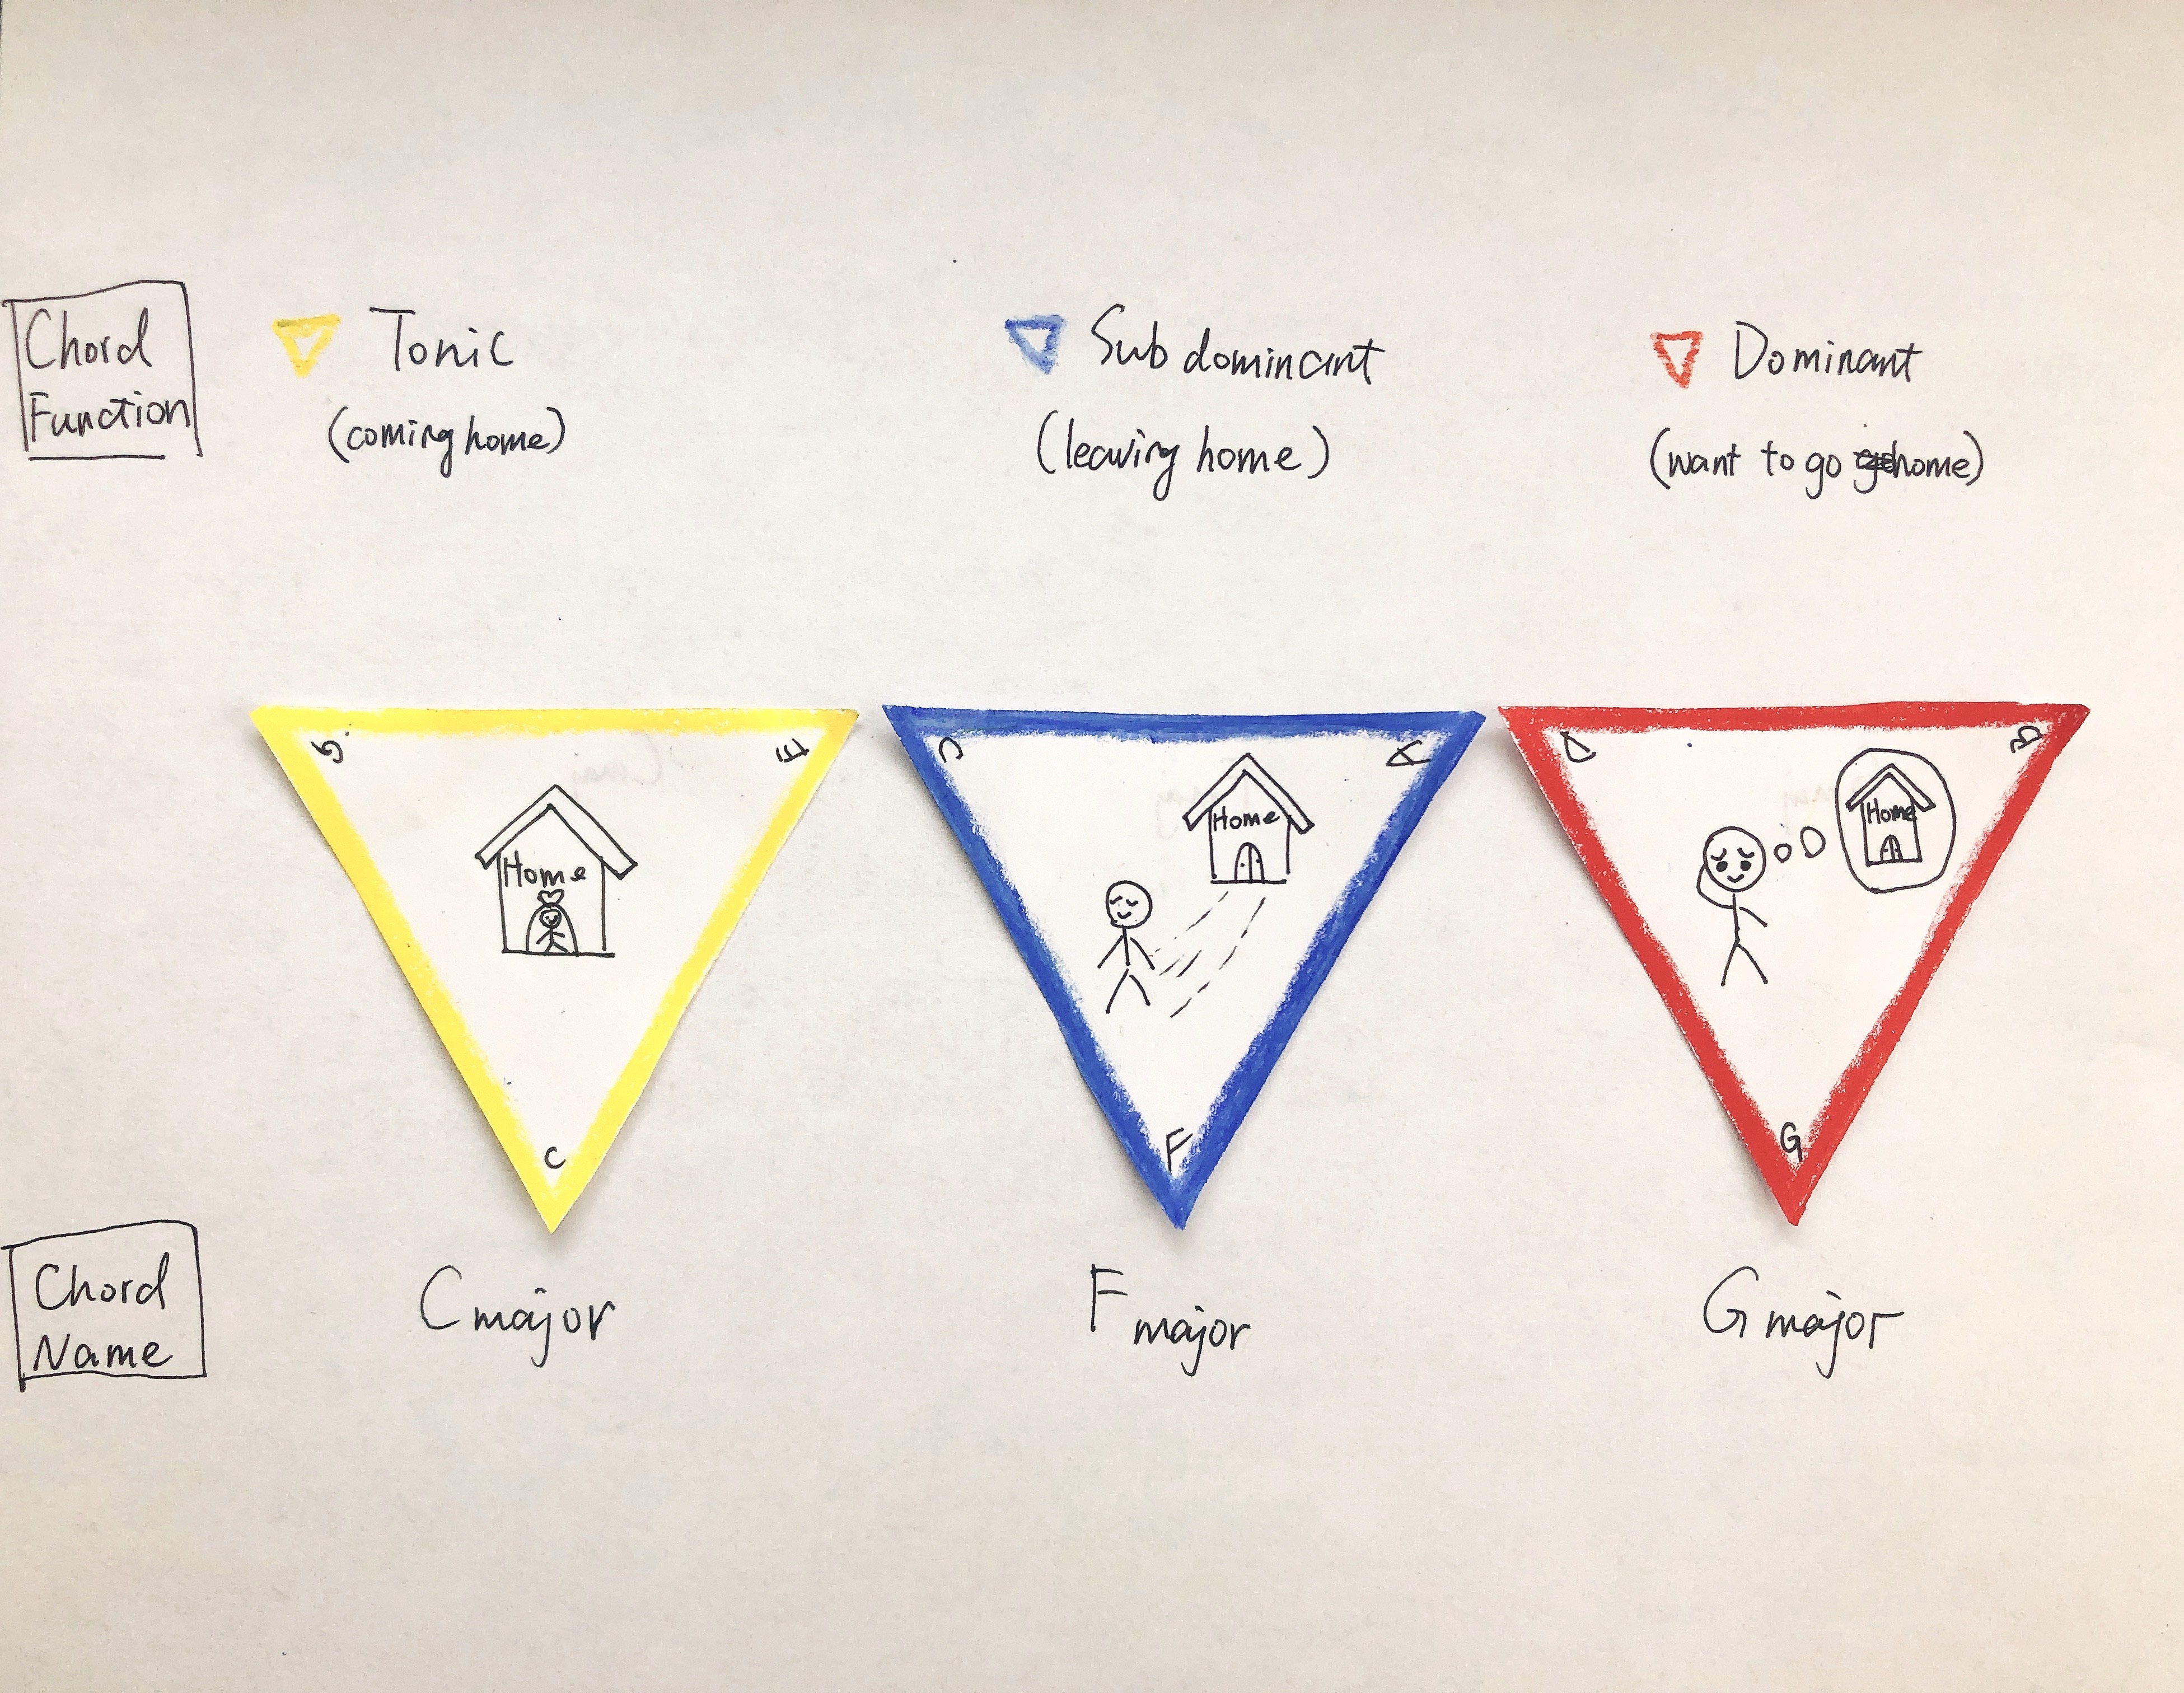 Chord
Function
Tonic
(coming home)
Sub dominant
(leaving home)
Dominant
(want to go home)
G
E
Home
C
C
A
Home
F
D
B
Home
G
Chord
Name
C major
F major
G major